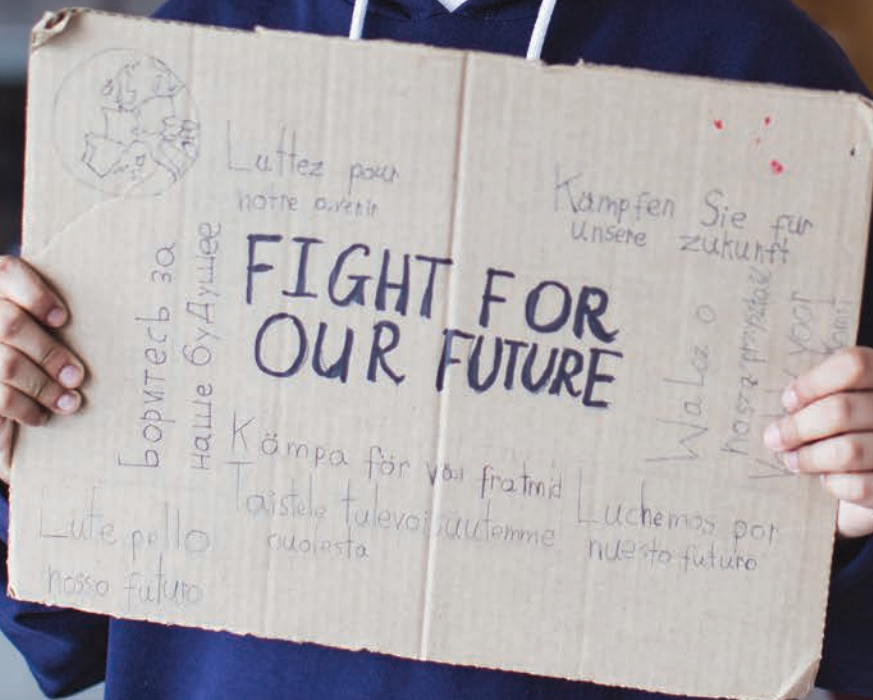 Luttez pour
notre avenir
Kämpfen Sie für
unsere zukunft
FIGHT FOR
OUR FUTURE
Боритесь за
наше будущее
Walcz o
naszą przyszłość
voor
Kämpa för vår framtid
Taistele tulevaisuutemme
puolesta
Luchemos por
nuesto futuro
Lute pello
nosso futuro